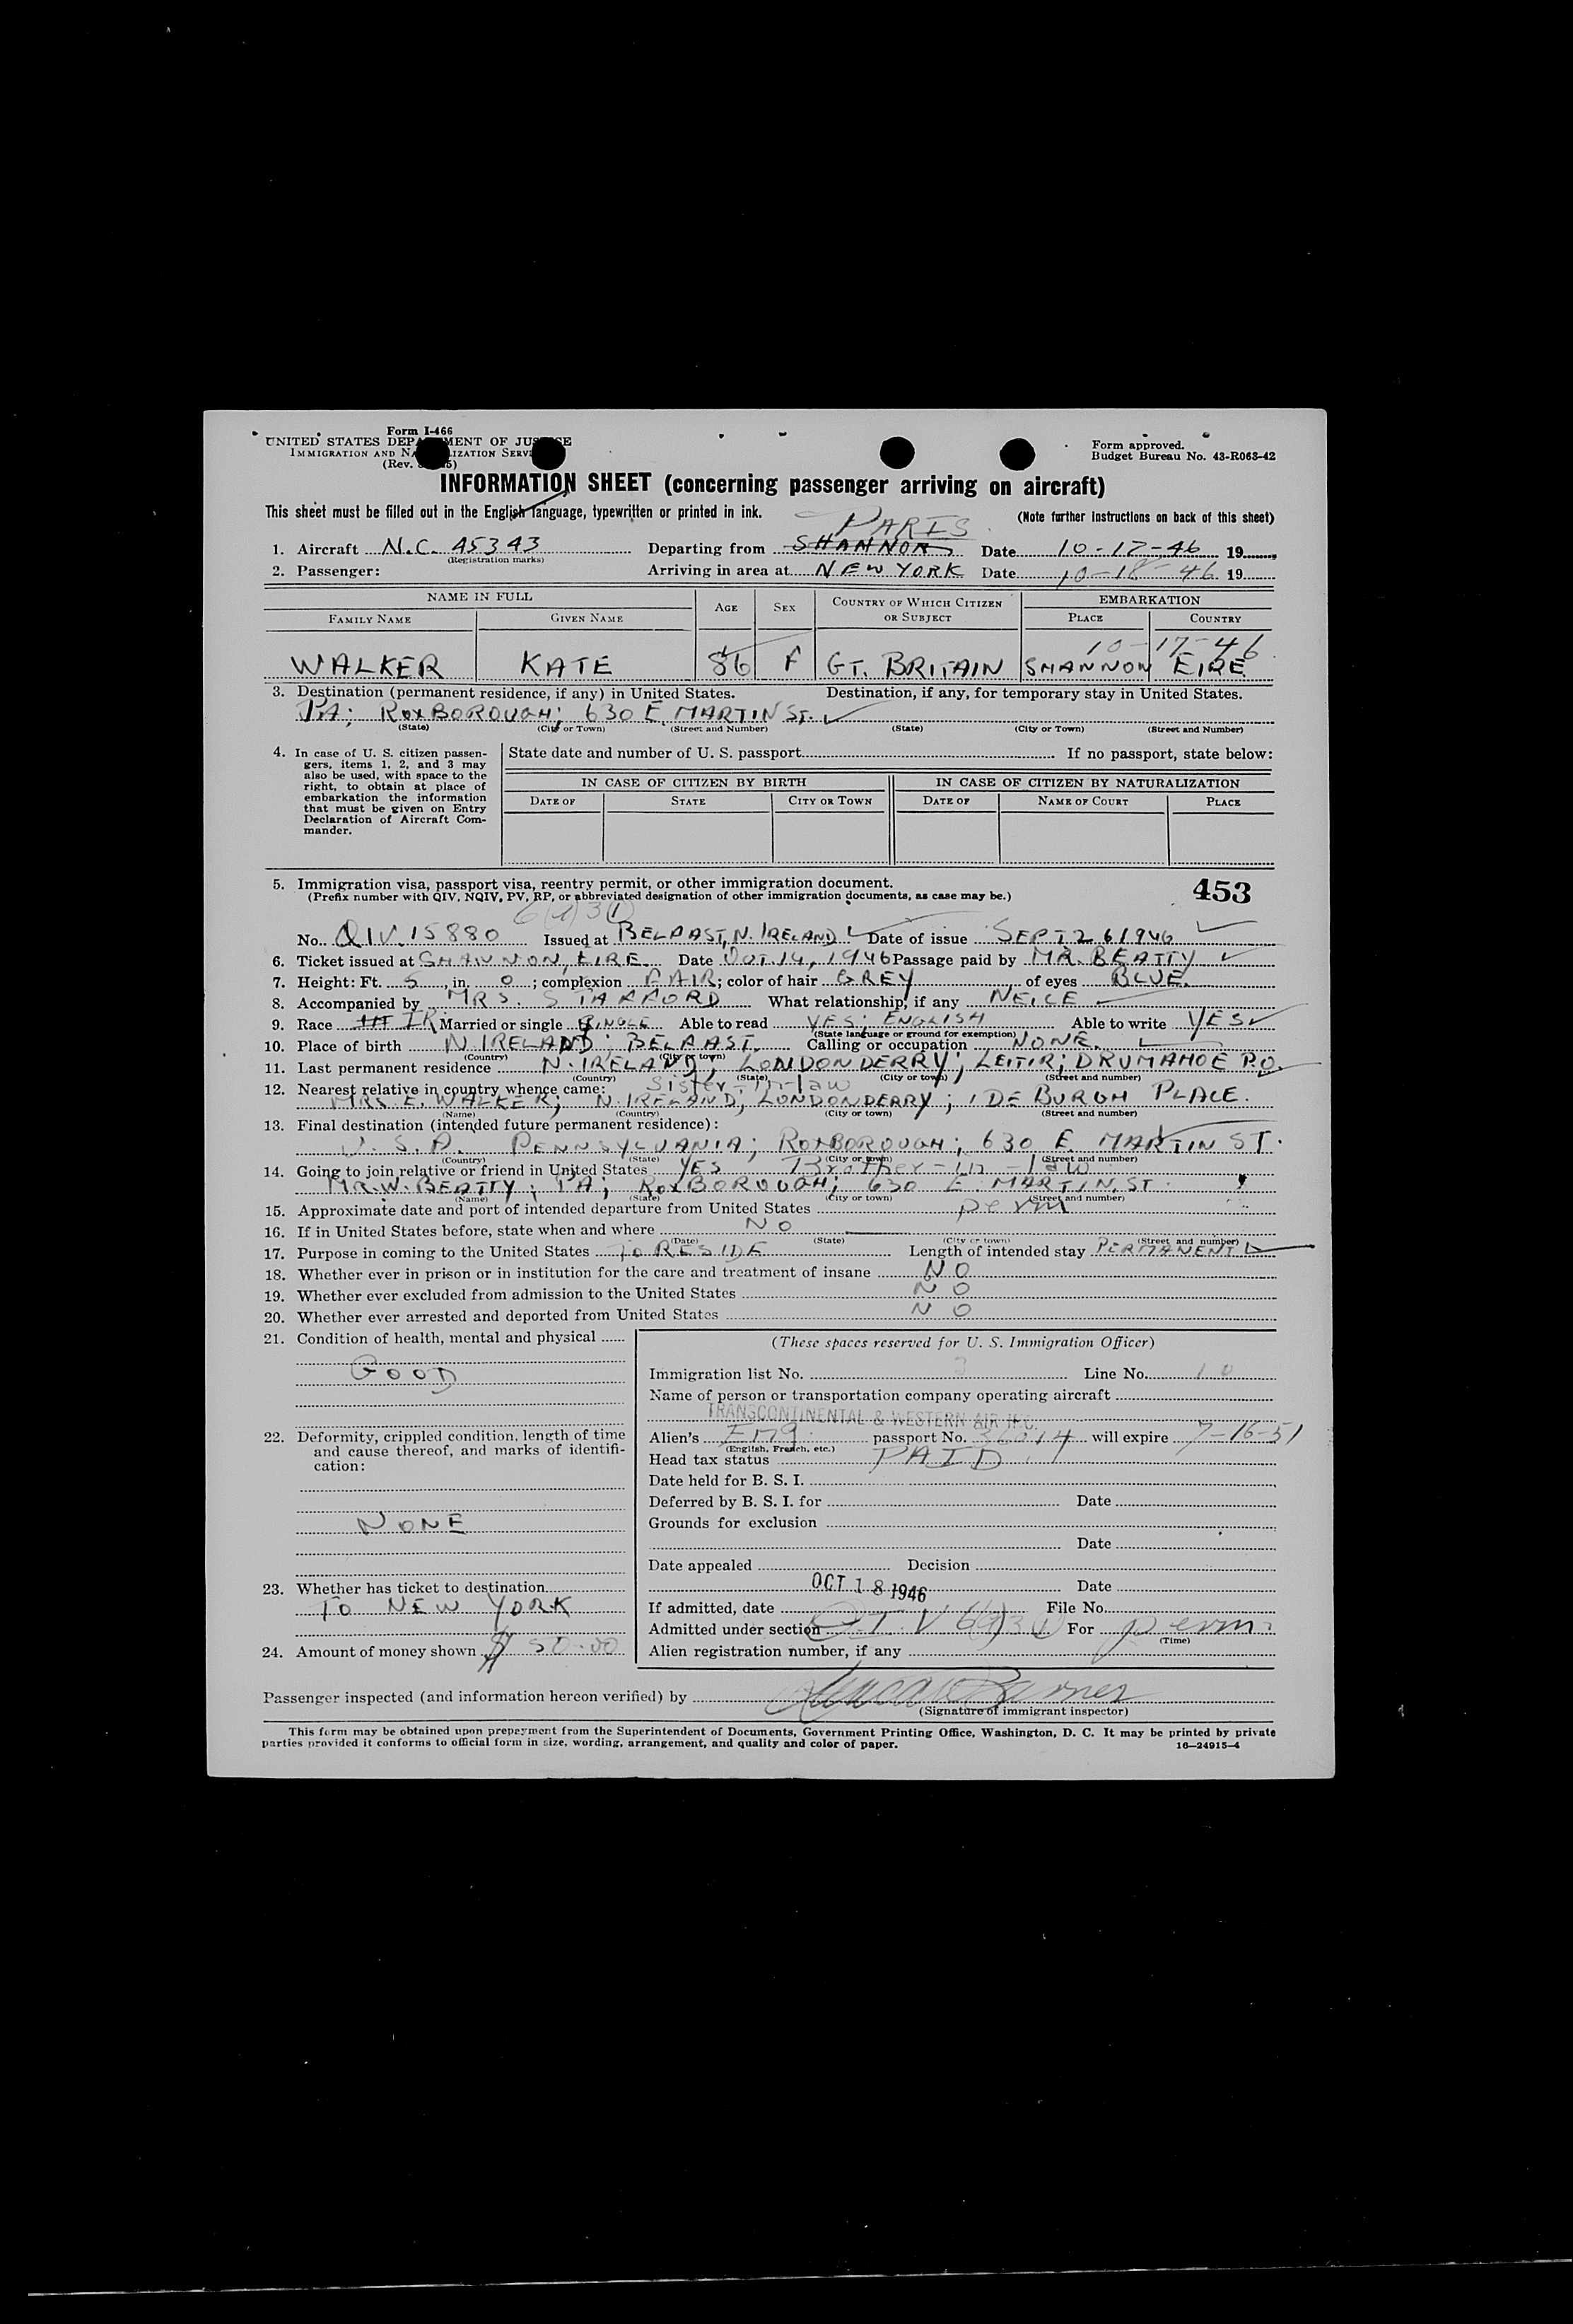 Form I-466
UNITED STATES DEPARTMENT OF JUSTICE
IMMIGRATION AND NATURALIZATION SERVICE
(Rev.
Form approved.
Budget Bureau No. 43-R063-42
INFORMATION SHEET (concerning passenger arriving on aircraft)
This sheet must be filled out in the English language, typewritten or printed in ink. (Note further instructions on back of this sheet)
PARIS
1. Aircraft N.C. 45343 Departing from SHANNON Date 10-17-46 19
(Registration marks)
2. Passenger: Arriving in area at NEW YORK Date 10-18-46 19
NAME IN FULL AGE SEX COUNTRY OF WHICH CITIZEN OR SUBJECT EMBARKATION
FAMILY NAME GIVEN NAME PLACE COUNTRY
10-17-46
WALKER KATE 86 F GT. BRITAIN SHANNON EIRE
3. Destination (permanent residence, if any) in United States. Destination, if any, for temporary stay in United States.
PA; ROXBOROUGH; 630 E. MARTIN ST.
(State) (City or Town) (Street and Number) (State) (City or Town) (Street and Number)
4. In case of U. S. citizen passengers, items 1, 2, and 3 may also be used, with space to the right, to obtain at place of embarkation the information that must be given on Entry Declaration of Aircraft Commander.
State date and number of U. S. passport If no passport, state below:
IN CASE OF CITIZEN BY BIRTH IN CASE OF CITIZEN BY NATURALIZATION
DATE OF STATE CITY OR TOWN DATE OF NAME OF COURT PLACE
5. Immigration visa, passport visa, reentry permit, or other immigration document. 453
(Prefix number with QIV, NQIV, PV, RP, or abbreviated designation of other immigration documents, as case may be.)
No. QIV.15880 Issued at BELFAST, N. IRELAND Date of issue SEPT 26 1946
6. Ticket issued at SHANNON, EIRE Date OCT 14, 1946 Passage paid by MR. BEATTY
7. Height: Ft. 5, in. 0; complexion FAIR; color of hair GREY, of eyes BLUE.
8. Accompanied by MRS. STAFFORD What relationship, if any NEICE
9. Race IR Married or single SINGLE Able to read YES; ENGLISH Able to write YES
(State language or ground for exemption)
10. Place of birth N. IRELAND; BELFAST. Calling or occupation NONE.
(Country) (City or town)
11. Last permanent residence N. IRELAND; LONDONDERRY; LEITIR; DRUMAHOE P.O.
(Country) (State) (City or town) (Street and number)
12. Nearest relative in country whence came: Sister-in-law
MRS E. WALKER; N. IRELAND; LONDONDERRY; 1 DE BURGH PLACE.
(Name) (Country) (City or town) (Street and number)
13. Final destination (intended future permanent residence):
U.S.A. PENNSYLVANIA; ROXBOROUGH; 630 E. MARTIN ST.
(Country) (State) (City or town) (Street and number)
14. Going to join relative or friend in United States YES Brother-in-law
MR. W. BEATTY; PA; ROXBOROUGH; 630 E MARTIN ST.
(Name) (State) (City or town) (Street and number)
15. Approximate date and port of intended departure from United States perm
16. If in United States before, state when and where NO
(Date) (State) (City or town) (Street and number)
17. Purpose in coming to the United States TO RESIDE Length of intended stay PERMANENT
18. Whether ever in prison or in institution for the care and treatment of insane NO
19. Whether ever excluded from admission to the United States NO
20. Whether ever arrested and deported from United States NO
21. Condition of health, mental and physical
GOOD
22. Deformity, crippled condition, length of time and cause thereof, and marks of identification:
NONE
23. Whether has ticket to destination
TO NEW YORK
24. Amount of money shown $50.00
(These spaces reserved for U. S. Immigration Officer)
Immigration list No. 3 Line No. 10
Name of person or transportation company operating aircraft
TRANSCONTINENTAL & WESTERN AIR INC.
Alien's Eng passport No. will expire 7-16-51
(English, French, etc.)
Head tax status PAID
Date held for B. S. I.
Deferred by B. S. I. for Date
Grounds for exclusion
Date
Date appealed Decision
OCT 18 1946 Date
If admitted, date File No.
Admitted under section Q.I.V 6(a)3(1) For perm.
(Time)
Alien registration number, if any
Passenger inspected (and information hereon verified) by
(Signature of immigrant inspector)
This form may be obtained upon prepayment from the Superintendent of Documents, Government Printing Office, Washington, D. C. It may be printed by private
parties provided it conforms to official form in size, wording, arrangement, and quality and color of paper. 16—24915-4